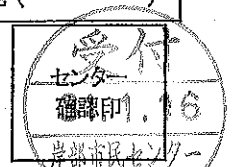 受付
センター
確認印
.1.16
岸部市民センター